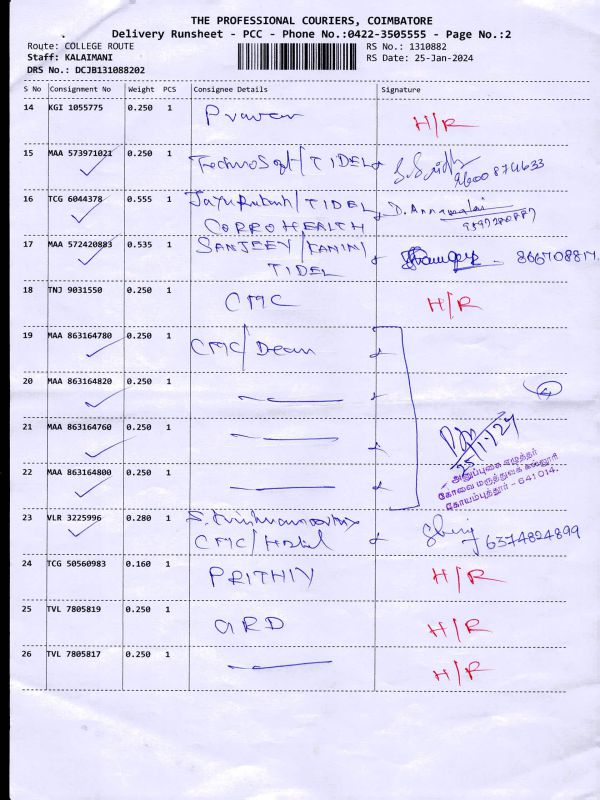 THE PROFESSIONAL COURIERS, COIMBATORE
Delivery Runsheet - PCC - Phone No.:0422-3505555 - Page No.:2
Route: COLLEGE ROUTE RS No.: 1310882
Staff: KALAIMANI RS Date: 25-Jan-2024
DRS No.: DCJB131088202
S No Consignment No Weight PCS Consignee Details Signature
14 KGI 1055775 0.250 1 H/R
15 MAA 573971021 0.250 1 /TIDEL 9600874633
16 TCG 6044378 0.555 1 /TIDEL D. Annamalai
CORROHEALTH
17 MAA 572420883 0.535 1 SANJEEV/KAMINI
TIDEL
18 TNJ 9031550 0.250 1 CMC H/R
19 MAA 863164780 0.250 1 CMC/Dean
20 MAA 863164820 0.250 1
21 MAA 863164760 0.250 1
25/1/24
22 MAA 863164800 0.250 1
அனுப்புகை எழுத்தர்
கோவை மருத்துவக் கல்லூரி
கோயம்புத்தூர் - 641 014.
23 VLR 3225996 0.280 1 6374824899
CMC/Hostel
24 TCG 50560983 0.160 1 PRITHIV H/R
25 TVL 7805819 0.250 1 GRD H/R
26 TVL 7805817 0.250 1 H/R